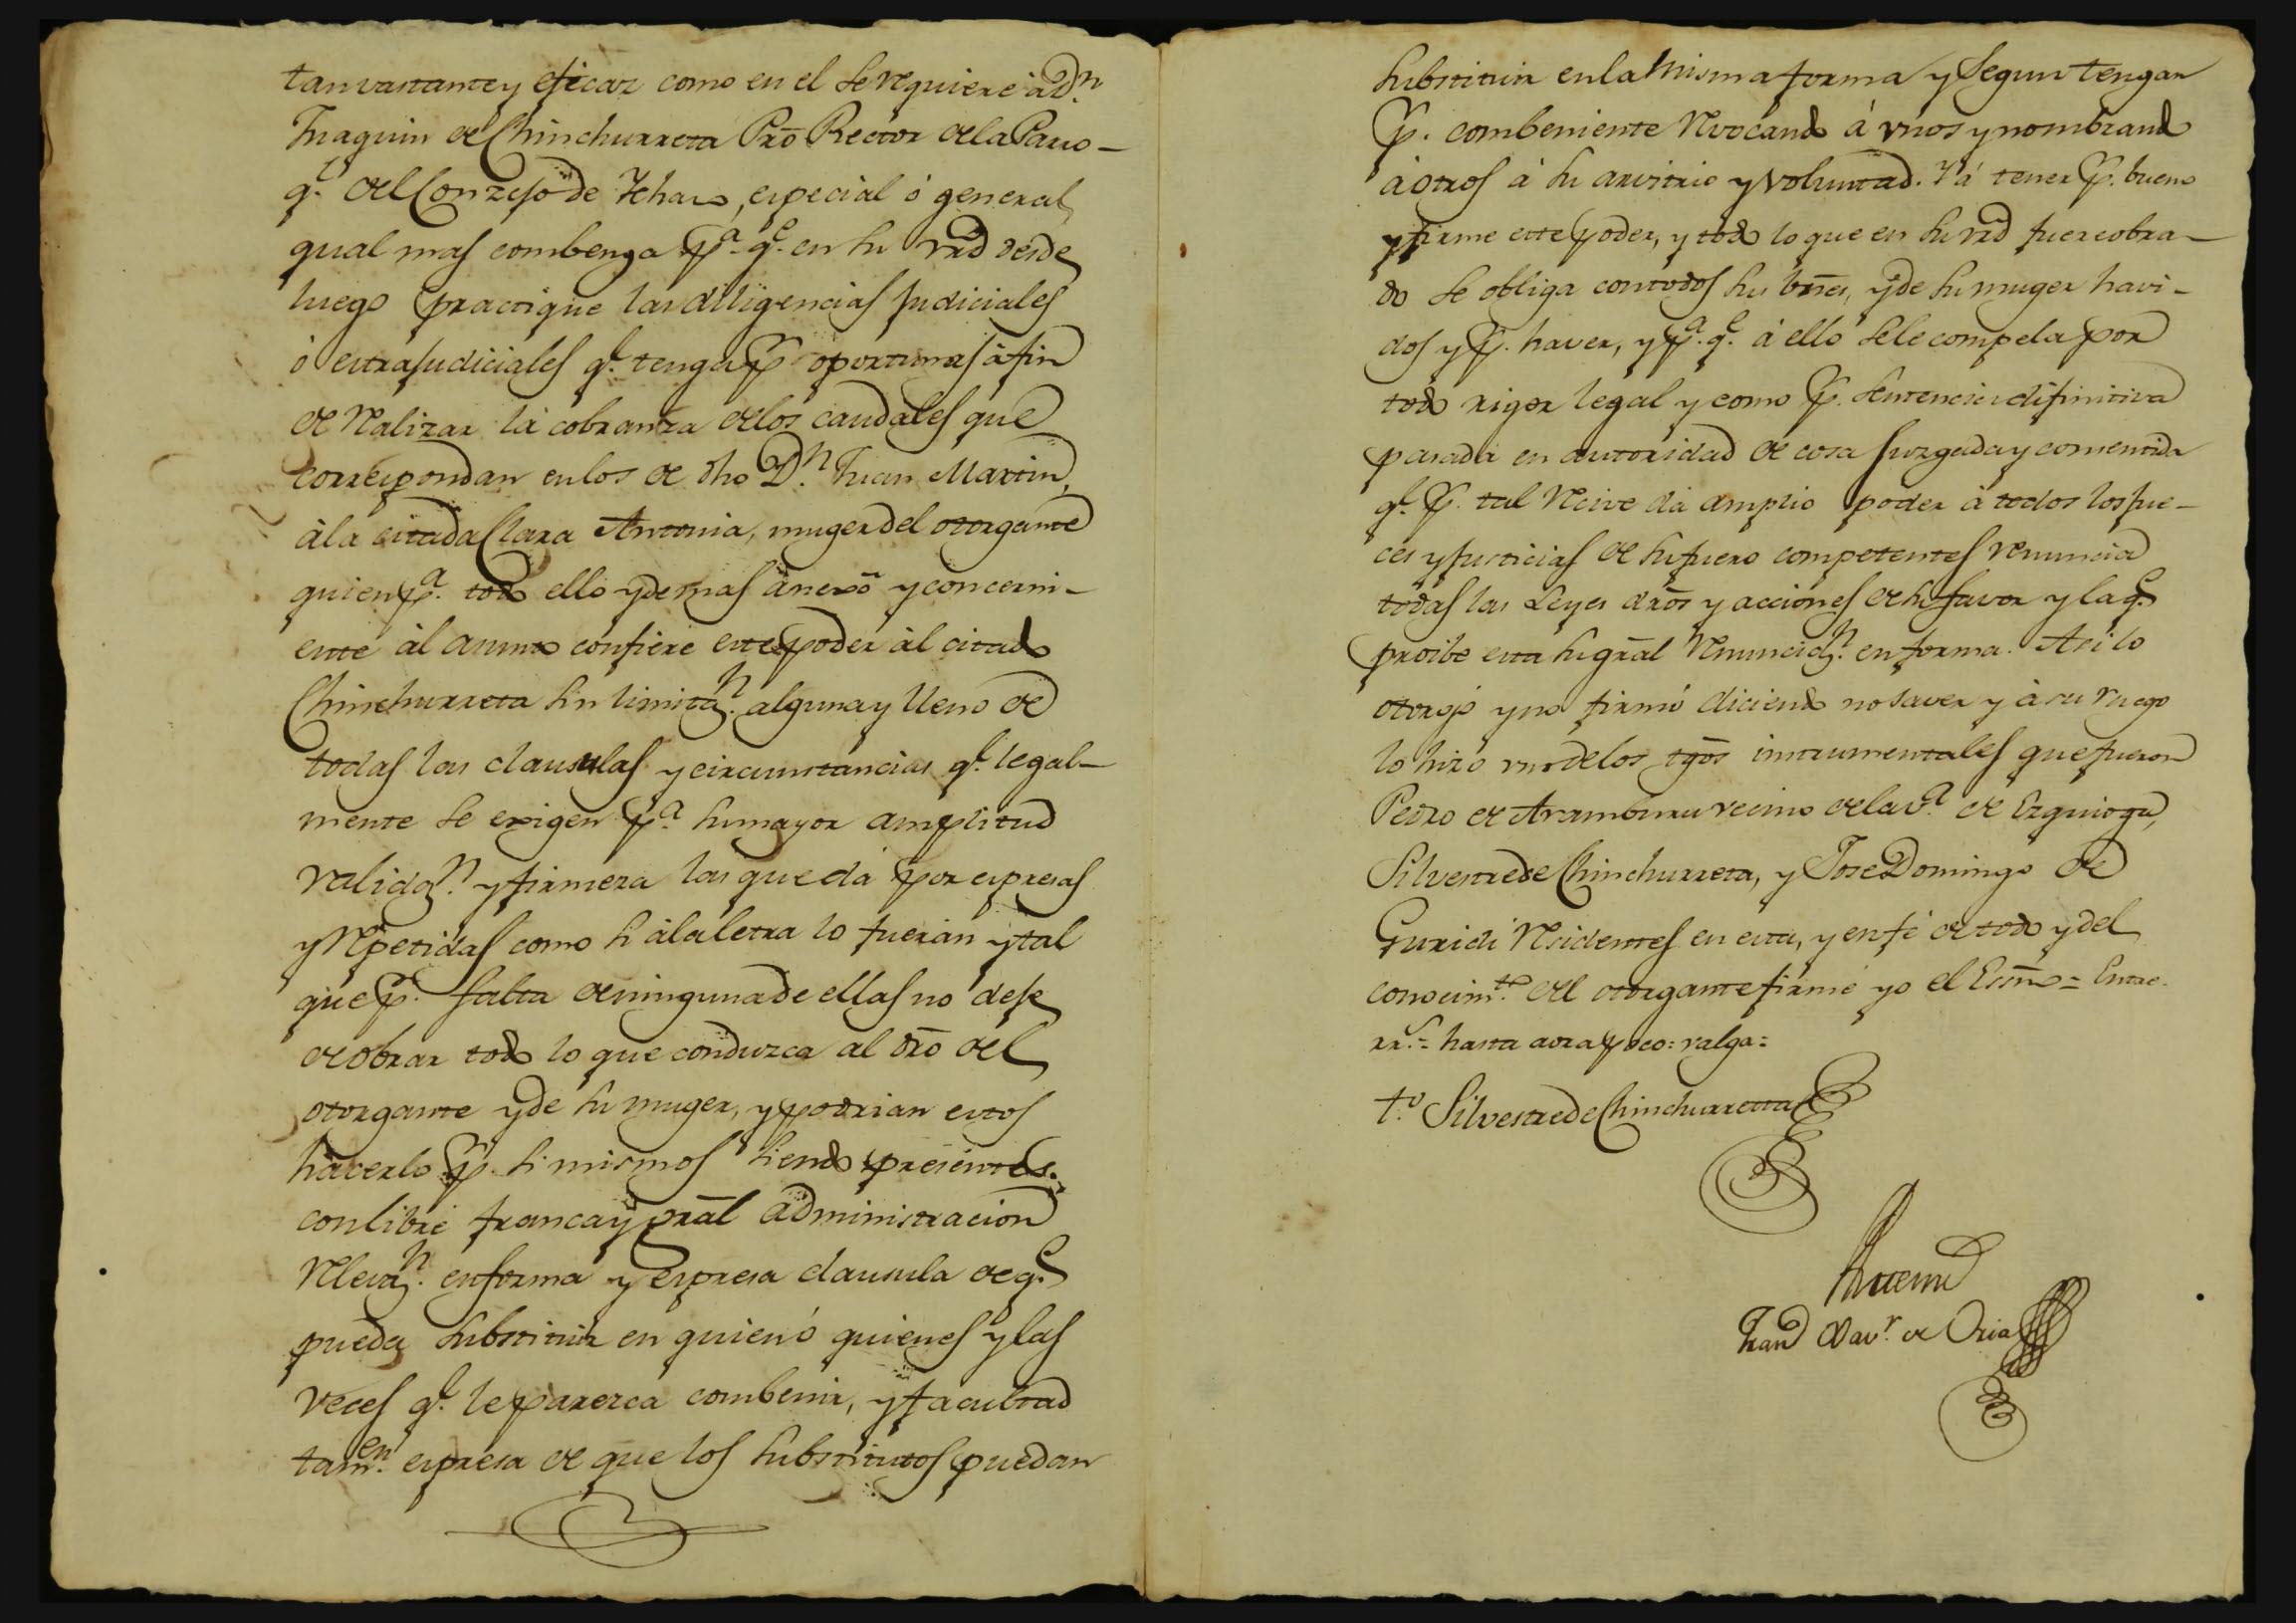 tan vastante y eficaz como en el se requiere à Dn.
Juaquin de Chinchurreta Pro Rector de la Parro-
q.l del Conzejo de Ichaso, especial ó general
qual mas combenga pa. qe. en su vrd desde
luego practique las diligencias judiciales
ó extrajudiciales qe. tenga p. oportunas à fin
de realizar la cobranza de los caudales que
correspondan en los de dho Dn. Juan Martin,
à la citada Clara Antonia, muger del otorgante
quien pa. todo ello y demas anexo y concerni-
ente àl asunto confiere este poder àl citado
Chinchurreta sin limitazn. alguna y lleno de
todas las clausulas y circunstancias qe. legal-
mente se exigen pa. su mayor amplitud
validazn. y firmeza las que dá por expresas
y repetidas como si à la letra lo fueran y tal
que p. falta de ninguna de ellas no deje
de obrar todo lo que conduzca al dro del
otorgante y de su muger, y podrian estos
hacerlo p. si mismos siendo presentes.
con libre franca y gral administracion
relevazn. en forma y expresa clausula de qe.
pueda substituir en quien ó quienes y las
veces qe. le parezca combenir, y facultad
tamen. expresa de que los substitutos puedan
substituir en la misma forma y segun tengan
p. combeniente revocando á vnos y nombrando
à otros à su arvitrio y voluntad. Y á tener p. bueno
y firme este poder, y todo lo que en su vrd fuere obra-
do se obliga con todos sus bnes, y de su muger havi-
dos y p. haver, y pa. qe. á ello se le compela por
todo rigor legal y como p. sentencia difinitiva
pasada en autoridad de cosa juzgada y consentida
qe. p. tal recive dá amplio poder à todos los jue-
ces y justicias de su fuero competentes renuncia
todas las Leyes dros y acciones de su favor y la qe.
proibe esta su gral renunciazn. en forma. Asi lo
otorgó y no firmó diciendo no saver y à su ruego
lo hizo vno de los tgos instrumentales que fueron
Pedro de Aramburu vecino de la va. de Ezquioga,
Silvestre de Chinchurreta, y Jose Domingo de
Guridi residentes en esta, y en fé de todo y del
conocimto. del otorgante firmé yo el Essno = Entre-
rr.s = hasta aora poco: valga =
to. Silvestre de Chinchurretta
Ante mi
Juan Xavr. de Oria